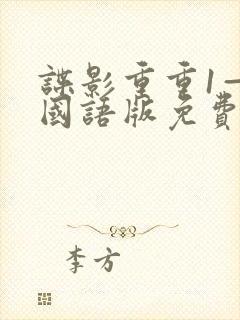 諜影重重1—
國語版免費
李方